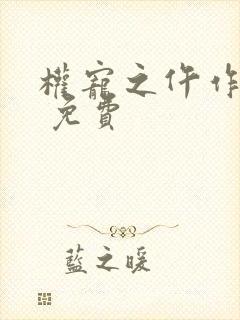 權寵之仵作
免費
藍之暖